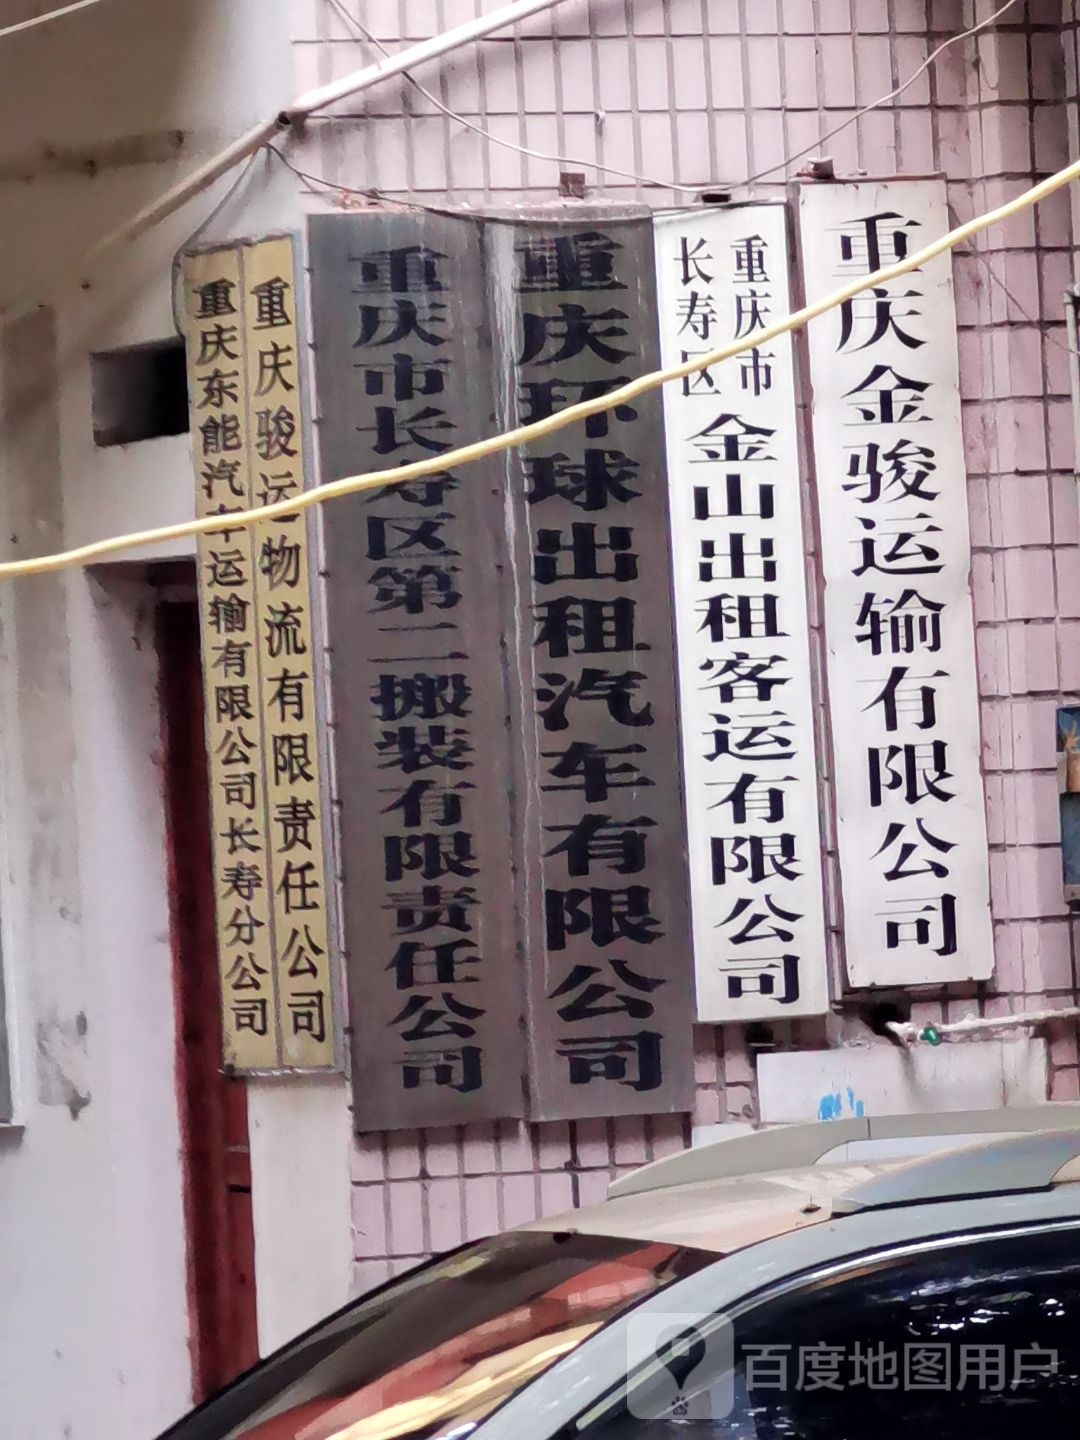 重庆东能汽车运输有限公司长寿分公司
重庆骏运物流有限责任公司
重庆市长寿区第二搬装有限责任公司
重庆环球出租汽车有限公司
重庆市
长寿区
金山出租客运有限公司
重庆金骏运输有限公司
百度地图用户